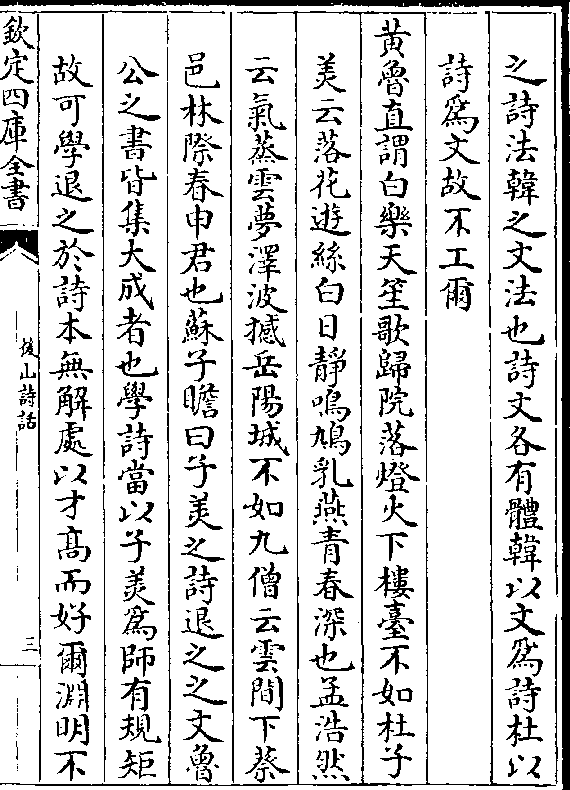 之詩法韓之文法也詩文各有體韓以文爲詩杜以
詩爲文故不工爾
黄魯直謂白樂天笙歌歸院落燈火下樓臺不如杜子
美云落花遊絲白日靜鳴鳩乳燕青春深也孟浩然
云氣蒸雲夢澤波撼岳陽城不如九僧云雲間下蔡
邑林際春申君也蘇子瞻曰子美之詩退之之文魯
公之書皆集大成者也學詩當以子美爲師有規矩
故可學退之於詩本無解處以才髙而好爾淵明不
欽定四庫全書
後山詩話
三